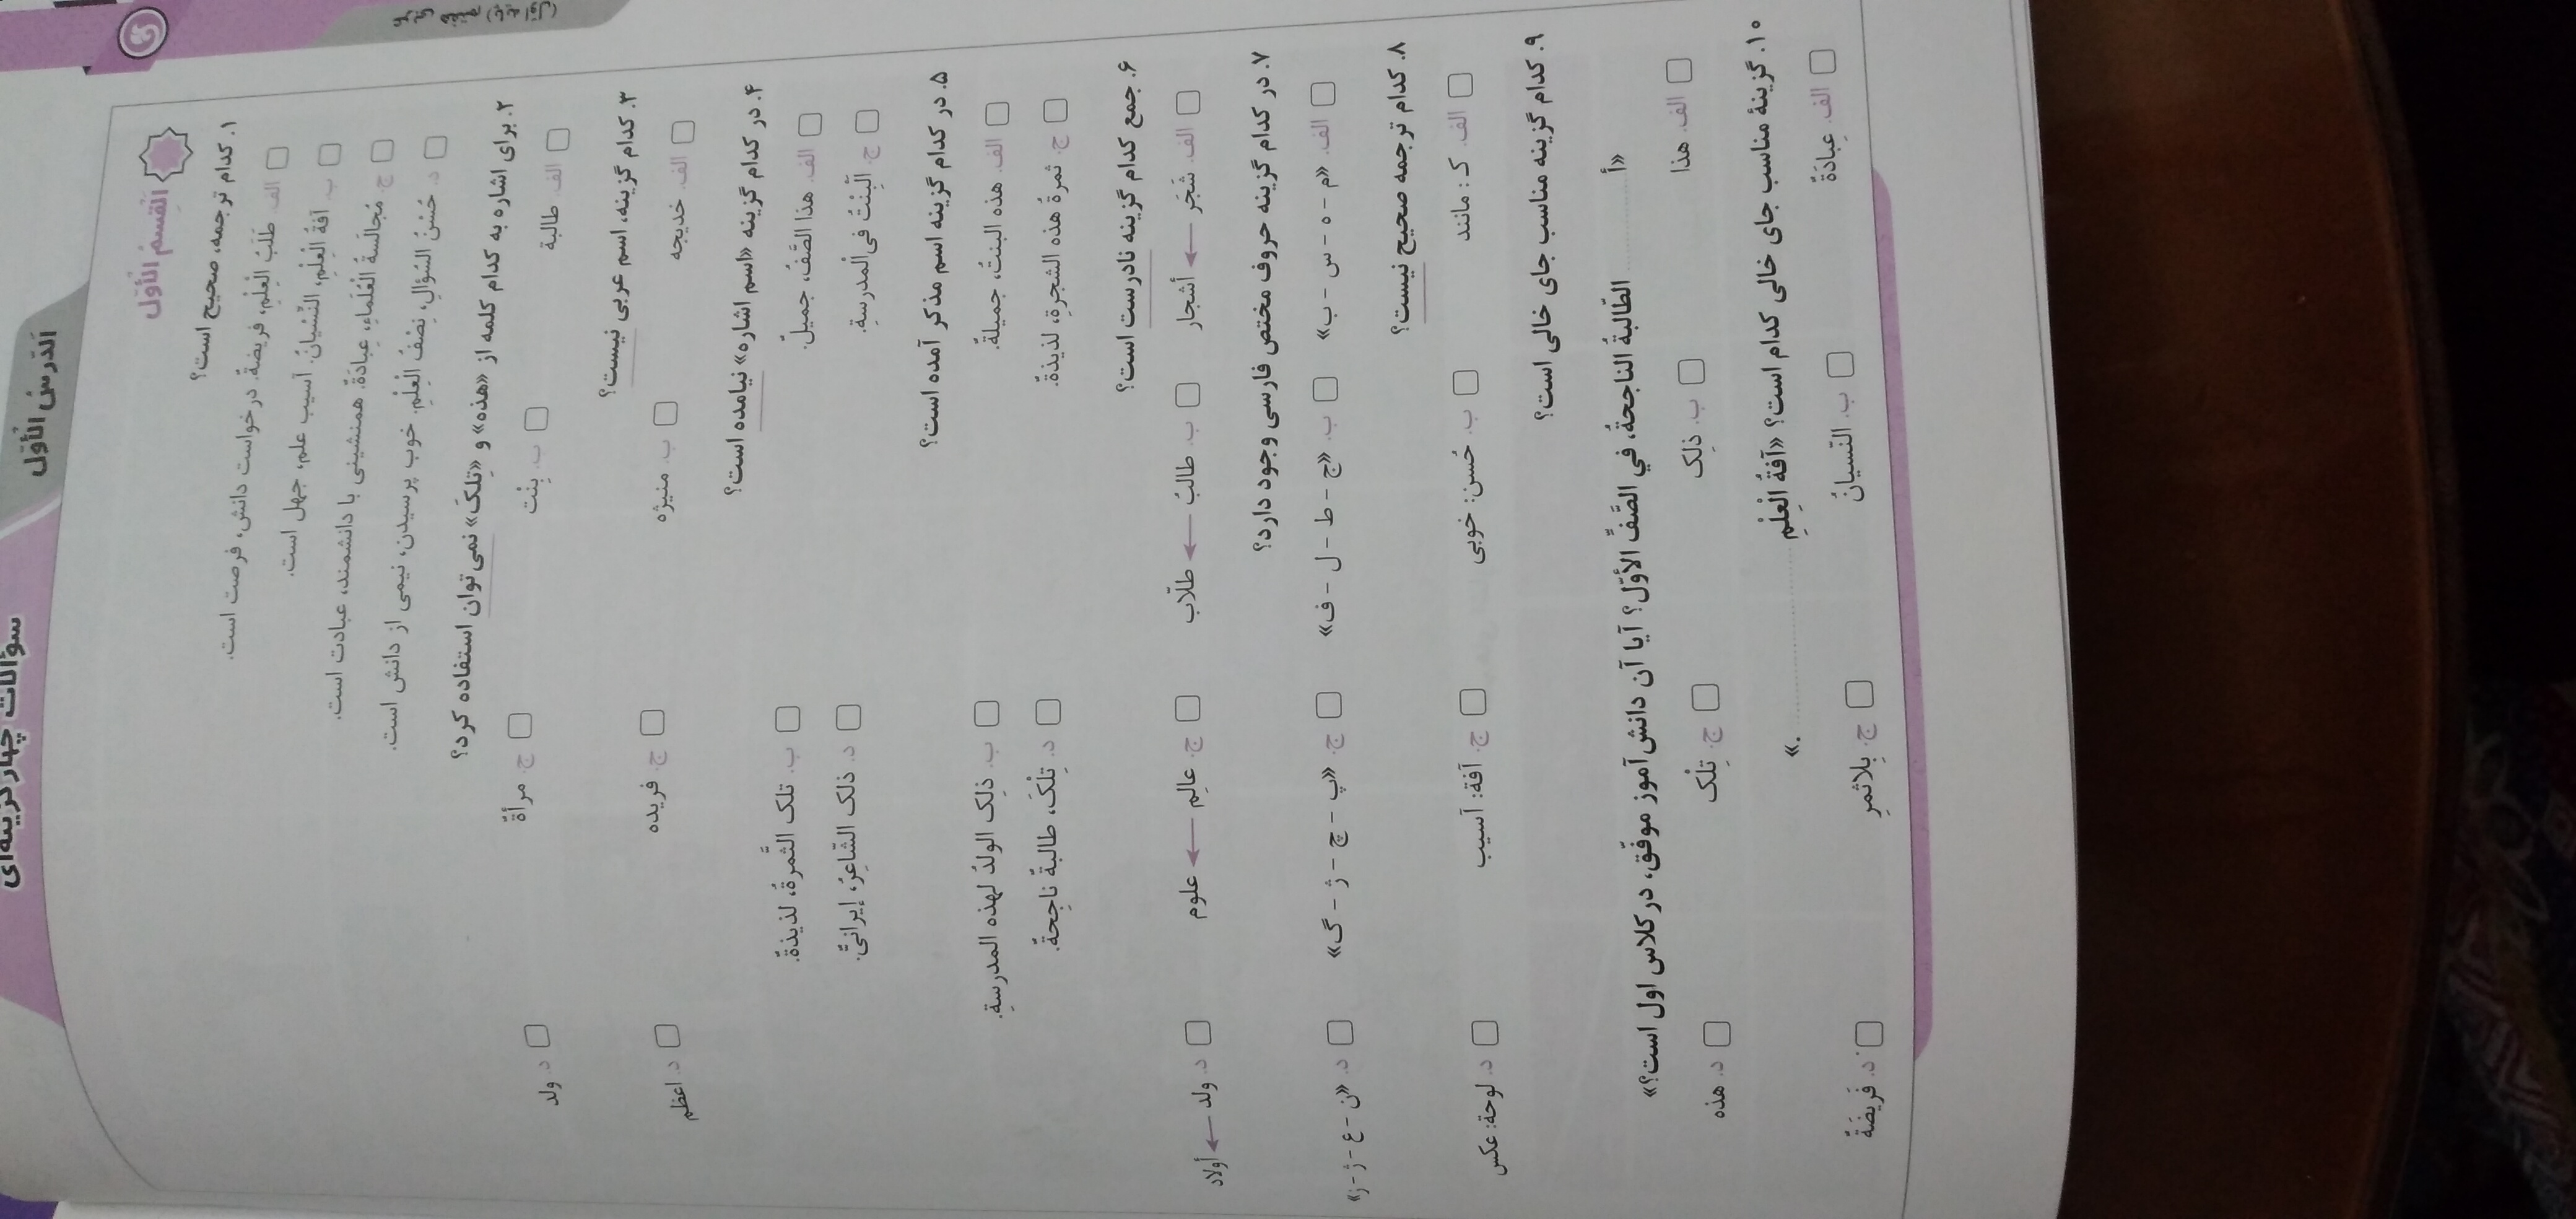 سؤالات چهارگزینه‌ای
اَلدَّرسُ الْأَوّل
عربی هفتم (پایه اوّل)
اَلْقِسمُ الْأَوّل
۱. کدام ترجمه، صحیح است؟
الف. طَلَبُ الْعِلْمِ، فریضةٌ. درخواست دانش، فرصت است.
ب. آفةُ الْعِلْمِ، النِّسْیانُ. آسیب علم، جهل است.
ج. مُجالَسةُ الْعُلَماءِ، عِبادَةٌ. همنشینی با دانشمند، عبادت است.
د. حُسْنُ السّؤالِ، نِصْفُ الْعِلْمِ. خوب پرسیدن، نیمی از دانش است.
۲. برای اشاره به کدام کلمه از «هذه» و «تِلکَ» نمی‌توان استفاده کرد؟
الف. طالبة ب. بِنْت ج. مرأةٌ د. ولد
۳. کدام گزینه، اسم عربی نیست؟
الف. خدیجه ب. منیژه ج. فریده د. اعظم
۴. در کدام گزینه «اسم اشاره» نیامده است؟
الف. هذا الصَّفُ، جمیلٌ. ب. تلک الثَّمرةُ، لذیذةٌ.
ج. اَلْبِنْتُ فی‌الْمدرسةِ. د. ذلک الشّاعِرُ، إیرانیٌّ.
۵. در کدام گزینه اسم مذکر آمده است؟
الف. هذه البنتُ، جمیلةٌ. ب. ذلِک الولدُ لهذه المدرسةِ.
ج. ثمرةُ هذه الشجرةِ، لذیذةٌ. د. تِلْکَ، طالبةٌ ناجِحةٌ.
۶. جمع کدام گزینه نادرست است؟
الف. شَجَر ← أشجار ب. طالبُ ← طلّاب ج. عالِم ← علوم د. ولد ← أولاد
۷. در کدام گزینه حروف مختص فارسی وجود دارد؟
الف. «م – ه – س – ب» ب. «ج – ط – ل – ف» ج. «پ – چ – ژ – گ» د. «ن – ع – ژ – ز»
۸. کدام ترجمه صحیح نیست؟
الف. کـ : مانند ب. حُسن: خوبی ج. آفة: آسیب د. لوحة: عکس
۹. کدام گزینه مناسب جای خالی است؟
«أ .............. الطّالبةُ الناجحةُ، في الصَّفِّ الأوّل؟ آیا آن دانش‌آموز موفّق، در کلاس اول است؟»
الف. هذا ب. ذلِک ج. تِلْک د. هذه
۱۰. گزینهٔ مناسب جای خالی کدام است؟ «آفةُ الْعِلْمِ .............................. .»
الف. عِبادَةٌ ب. النّسیانُ ج. بِلاثمرِ د. فَریضَةٌ